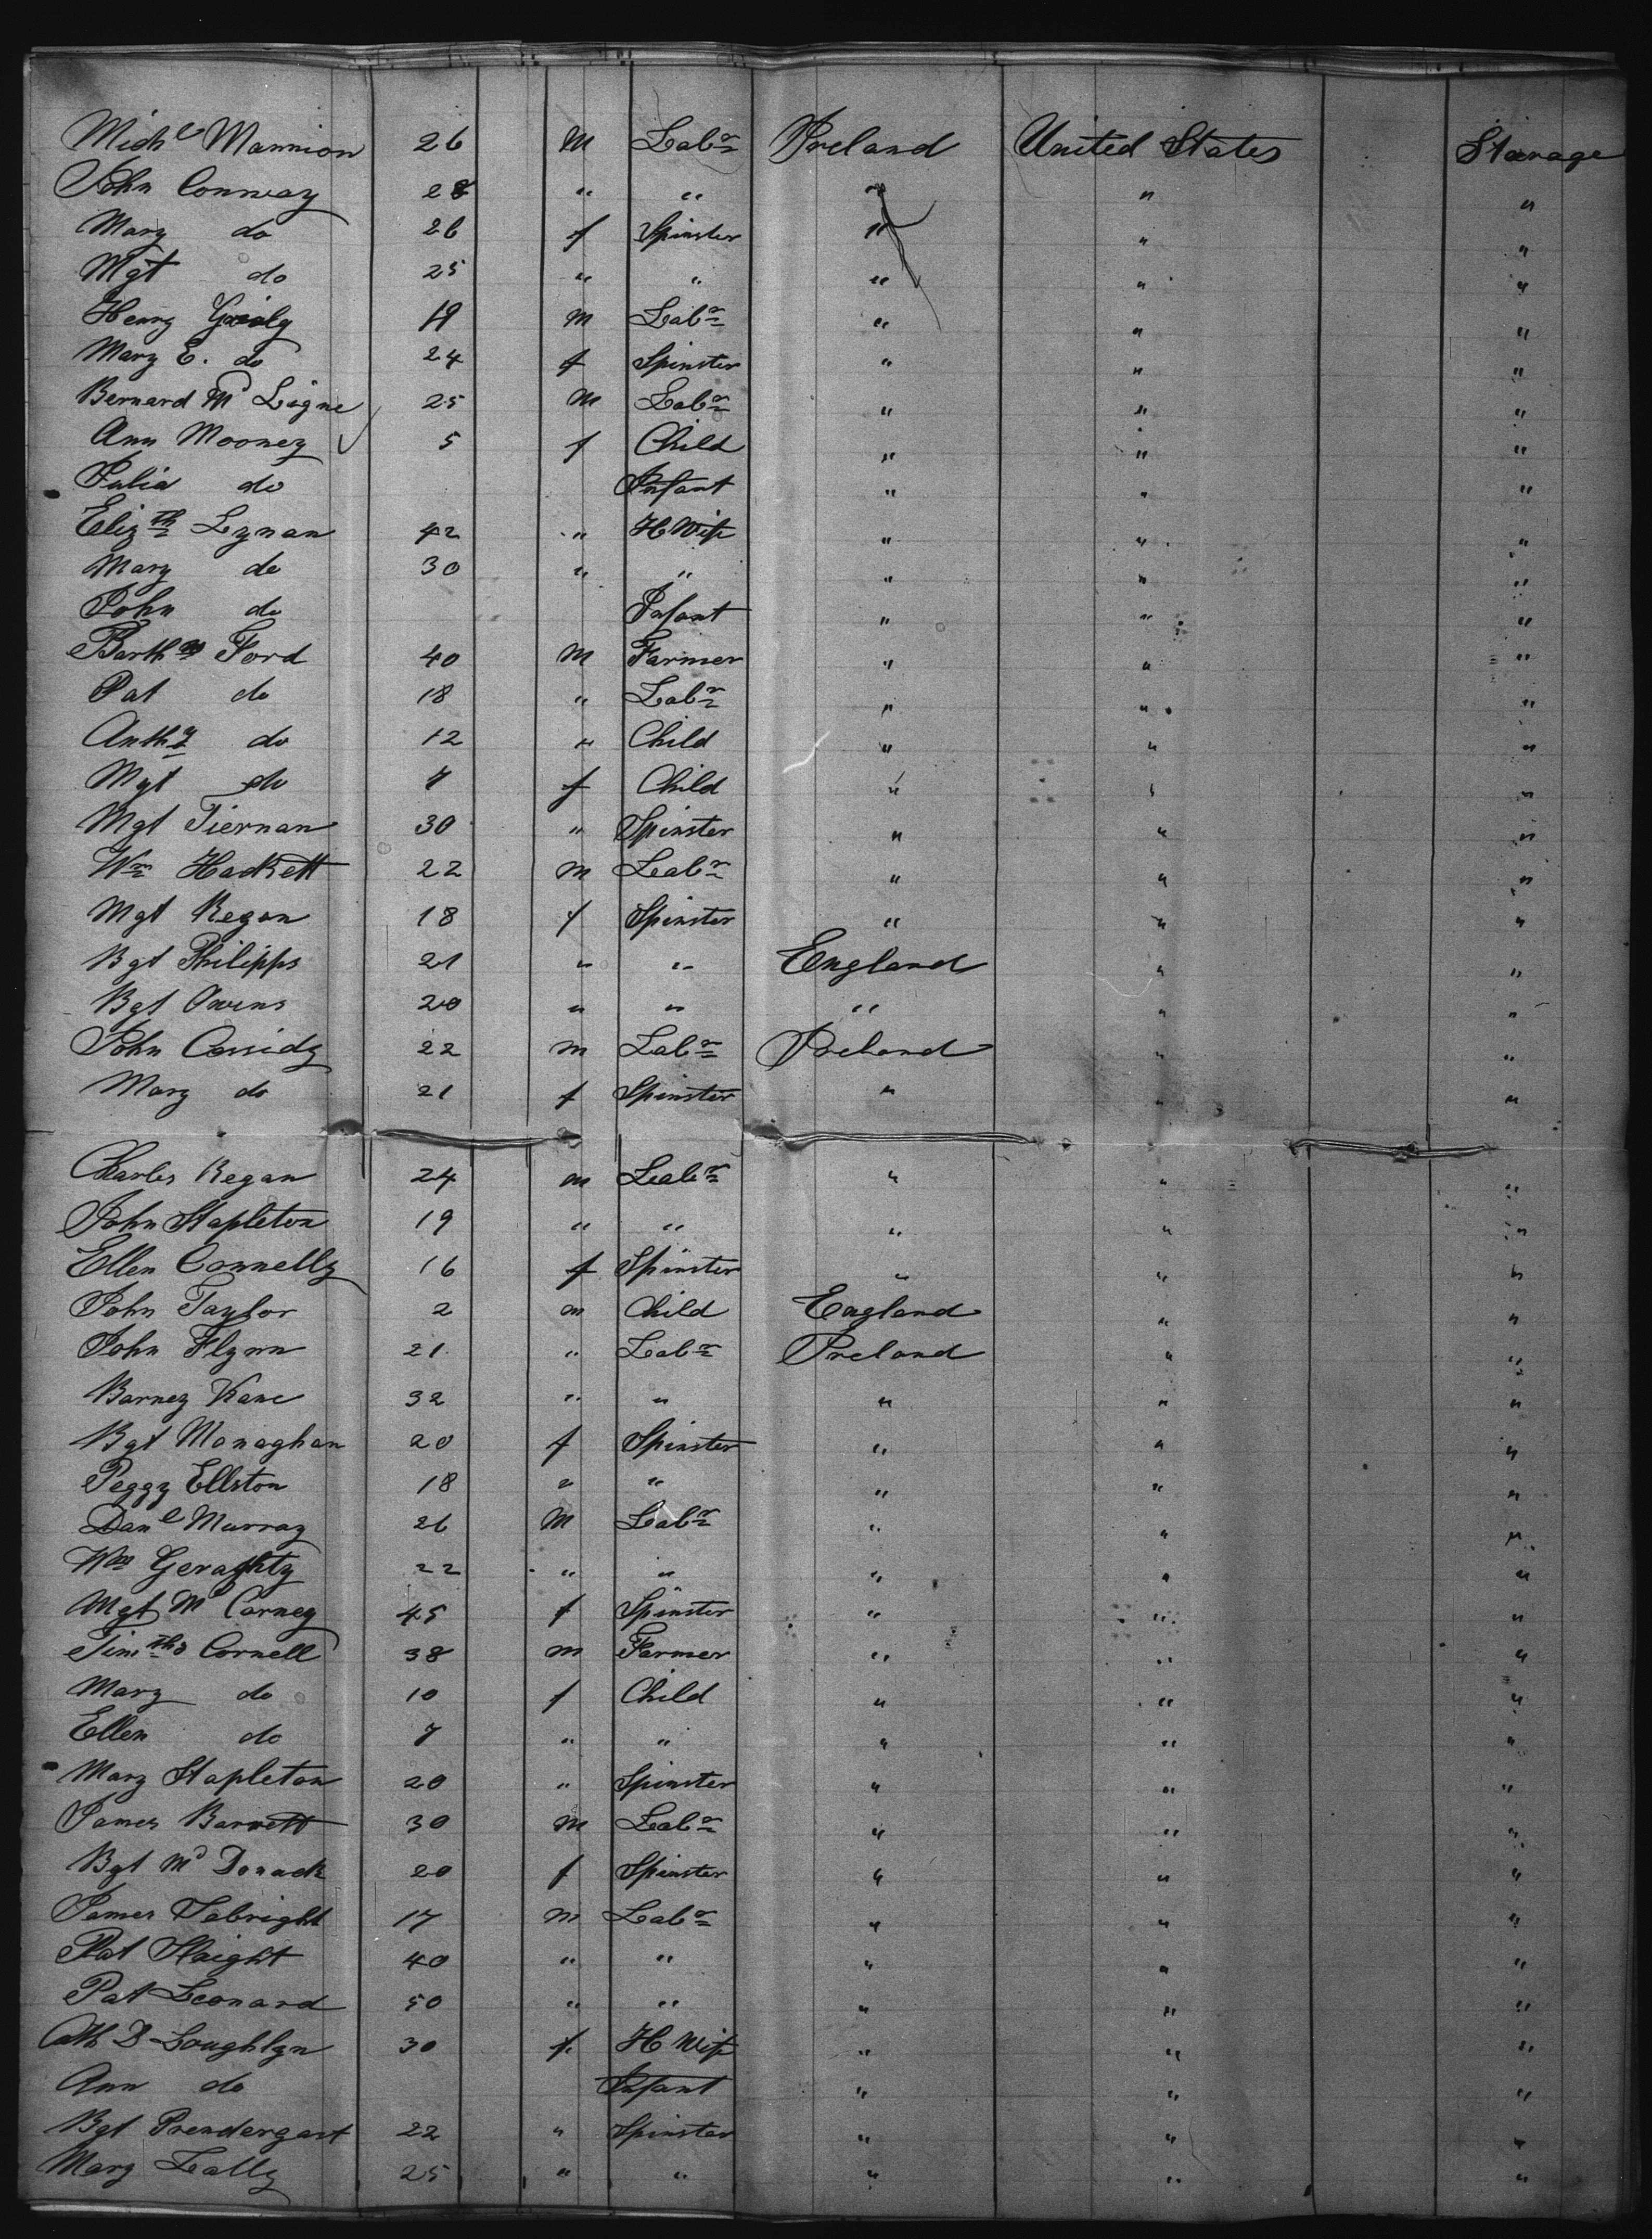 Mich^l Mannion 26 M Lab^r Ireland United States Steerage
John Conway 28 " " " " "
Mary do 26 f Spinster " " "
Mgt do 25 " " " " "
Henry 19 M Lab^r " " "
Mary E. do 24 f Spinster " " "
Bernard M^c Ligne 25 M Lab^r " " "
Ann Mooney 5 f Child " " "
Julia do Infant " " "
Eliz^th Lynan 42 " H Wife " " "
Mary do 30 " " " " "
John do Infant " " "
Barth^w Ford 40 M Farmer " " "
Pat do 18 " Lab^r " " "
Anth^y do 12 " Child " " "
Mgt do 7 f Child " " "
Mgt Tiernan 30 " Spinster " " "
W^m Hackett 22 m Lab^r " " "
Mgt Regan 18 f Spinster " " "
Bgt Philipps 21 " " England " "
Bgt Owens 20 " " " " "
John Cassidy 22 m Lab^r Ireland " "
Mary do 21 f Spinster " " "
Charles Regan 24 m Lab^r " " "
John Stapleton 19 " " " " "
Ellen Connelly 16 f Spinster " " "
John Taylor 2 m Child England " "
John Flynn 21 " Lab^r Ireland " "
Barney Kane 32 " " " " "
Bgt Monaghan 20 f Spinster " " "
Peggy Ellston 18 " " " " "
Dan^l Murray 26 M Lab^r " " "
W^m Geraghty 22 " " " " "
Mgt M^c Carney 45 f Spinster " " "
Tim^thy Cornell 38 m Farmer " " "
Mary do 10 f Child " " "
Ellen do 7 " " " " "
Mary Stapleton 20 " Spinster " " "
James Barrett 30 M Lab^r " " "
Bgt M^c Donack 20 f Spinster " " "
James Sabright 17 m Lab^r " " "
Pat Haight 40 " " " " "
Pat Leonard 50 " " " " "
Cath D Loughlyn 30 f H Wife " " "
Ann do Infant " " "
Bgt Prendergast 22 " Spinster " " "
Mary Lally 25 " " " " "